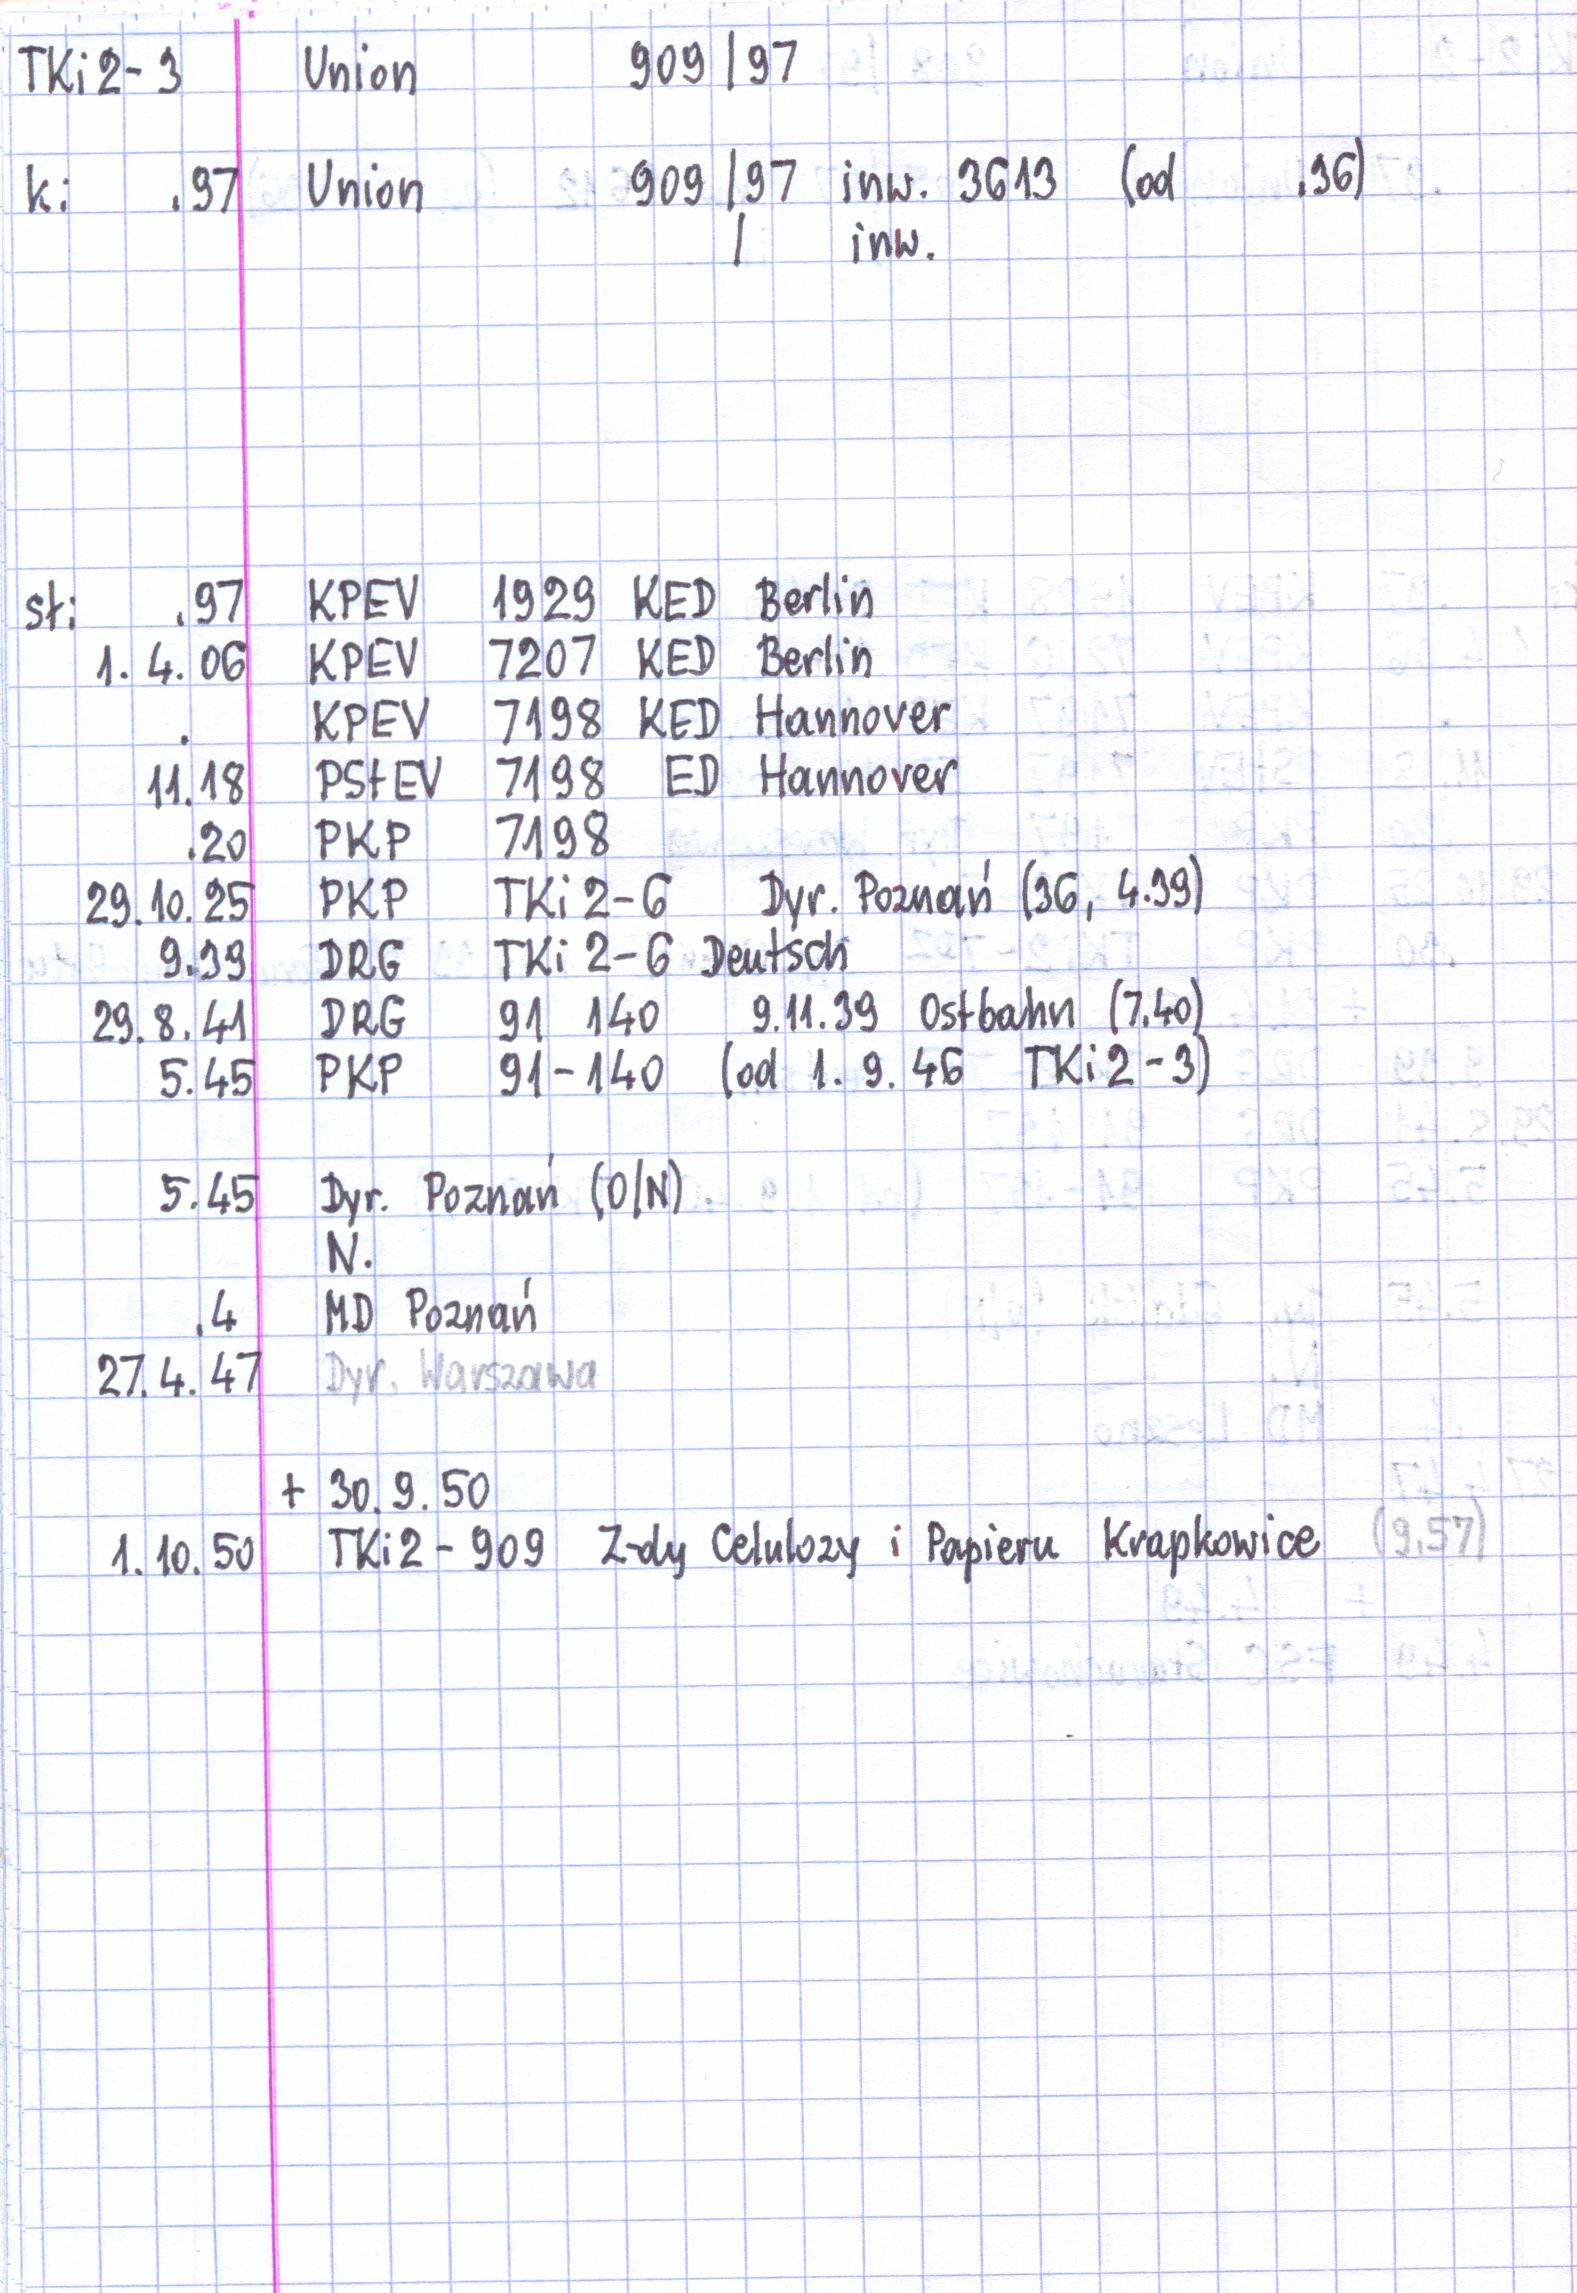 TKi2-3 Union 909/97
k: .97 Union 909/97 inw. 3613 (od .36)
/ inw.
st: .97 KPEV 1929 KED Berlin
1.4.06 KPEV 7207 KED Berlin
. KPEV 7198 KED Hannover
11.18 PStEV 7198 ED Hannover
.20 PKP 7198
29.10.25 PKP TKi2-6 Dyr. Poznań (36, 4.39)
9.39 DRG TKi2-6 Deutsch
29.8.41 DRG 91 140 9.11.39 Ostbahn (7.40)
5.45 PKP 91-140 (od 1.9.46 TKi2-3)
5.45 Dyr. Poznań (O/N)
N.
.4 MD Poznań
27.4.47 Dyr. Warszawa
+ 30.9.50
1.10.50 TKi2-909 Z-dy Celulozy i Papieru Krapkowice (9.57)